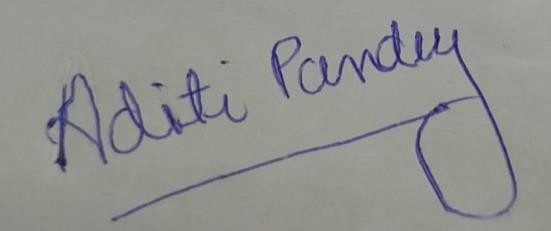 Aditi Pandey